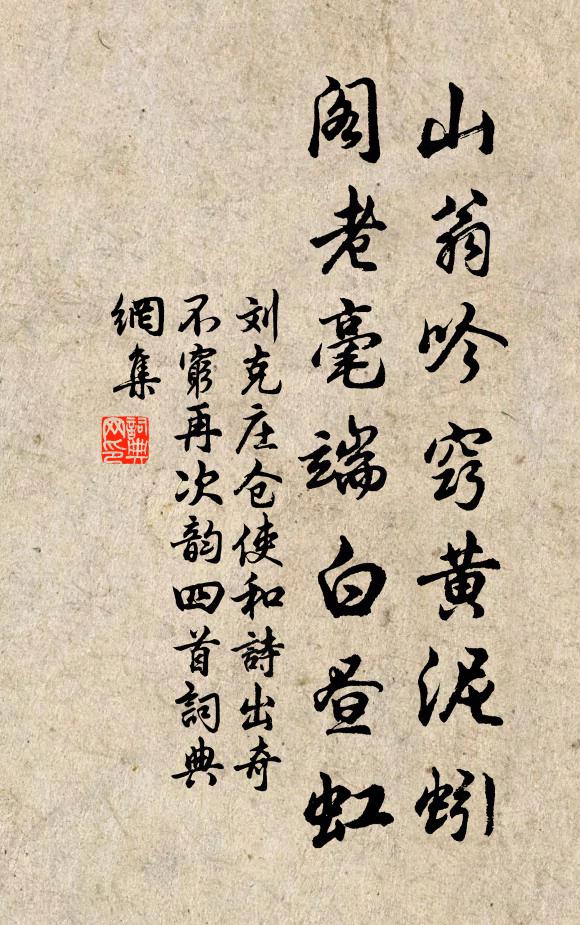 山翁吟窍黄泥蚓
阁老毫端白昼虹
刘克庄仓使和詩出奇
不窮再次韵四首詞典
網集
詞典网印